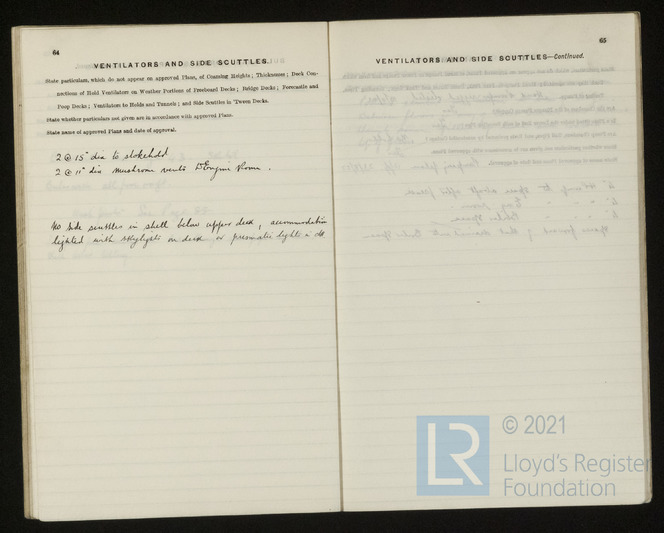 64
VENTILATORS AND SIDE SCUTTLES.
State particulars, which do not appear on approved Plans, of Coaming Heights; Thicknesses; Deck Con-
nections of Hold Ventilators on Weather Portions of Freeboard Decks; Bridge Decks; Forecastle and
Poop Decks; Ventilators to Holds and Tunnels; and Side Scuttles in 'Tween Decks.
State whether particulars not given are in accordance with approved Plans.
State name of approved Plans and date of approval.
2 @ 15" dia to stokehold
2 @ 11" dia mushroom vents to Engine Room.
No side scuttles in shell below upper deck, accommodation
lighted with skylights on deck or prismatic lights in dk
65
VENTILATORS AND SIDE SCUTTLES—Continued.
LR
© 2021
Lloyd's Register
Foundation